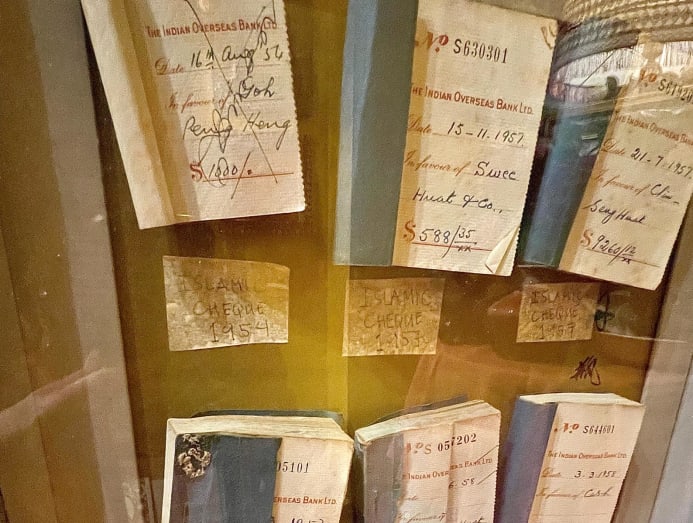 THE INDIAN OVERSEAS BANK LTD
Date 16th Aug 56
In favour of Goh
Heng
$ 1000/-
No S630301
THE INDIAN OVERSEAS BANK LTD.
Date 15-11.1957
In favour of Swee
Huat & Co.,
$ 588/35
No
THE INDIAN OVERSEAS BANK
Date 21-7-1957
In favour of
Seng Huat
$ 9260/12
ISLAMIC
CHEQUE
1954
ISLAMIC
CHEQUE
1957
ISLAMIC
CHEQUE
1957
05101
OVERSEAS BANK LTD.
No S 057202
THE INDIAN OVERSEAS BANK LTD
6.58
In favour of
No S644601
THE INDIAN OVERSEAS BANK LTD.
Date 3.3.1958
In favour of Cash